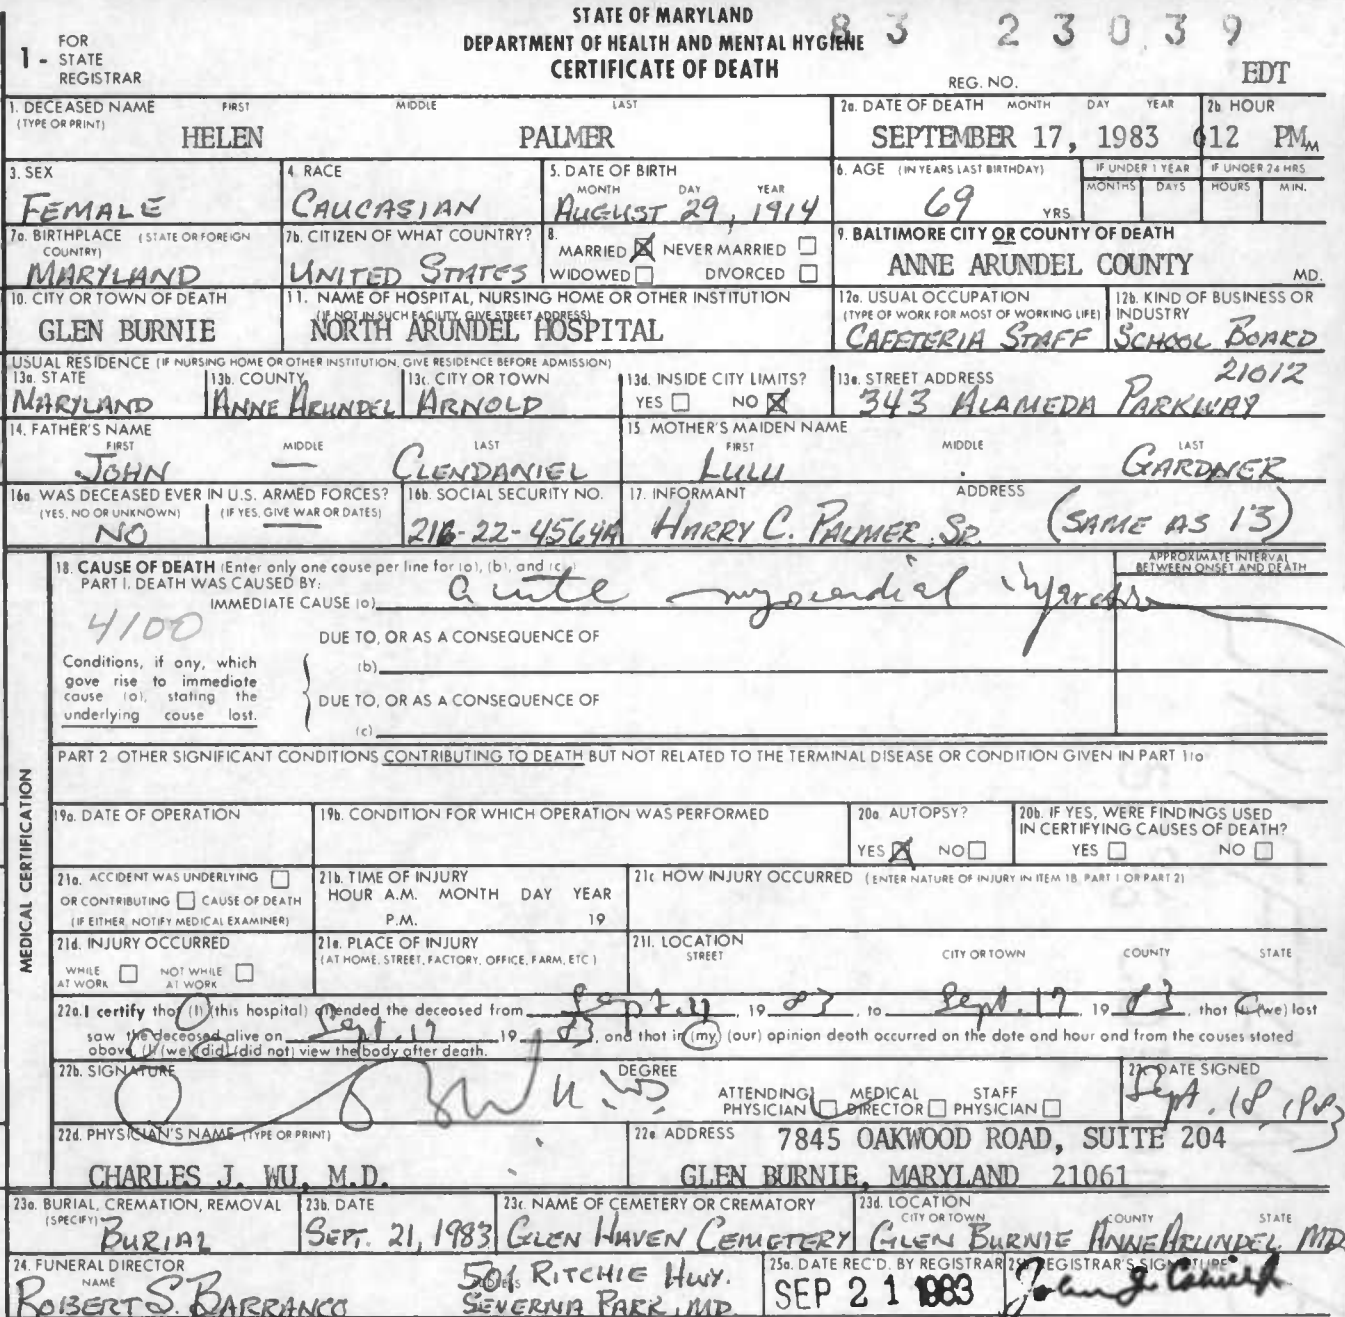 STATE OF MARYLAND
83 23039
1 - FOR STATE REGISTRAR
DEPARTMENT OF HEALTH AND MENTAL HYGIENE
CERTIFICATE OF DEATH
REG. NO.
EDT
1. DECEASED NAME FIRST MIDDLE LAST
(TYPE OR PRINT)
HELEN PALMER
2a. DATE OF DEATH MONTH DAY YEAR
SEPTEMBER 17, 1983
2b. HOUR
612 PM M
3. SEX
FEMALE
4. RACE
CAUCASIAN
5. DATE OF BIRTH
MONTH DAY YEAR
AUGUST 29, 1914
6. AGE (IN YEARS LAST BIRTHDAY)
69 YRS
IF UNDER 1 YEAR
MONTHS DAYS
IF UNDER 24 HRS
HOURS MIN.
7a. BIRTHPLACE (STATE OR FOREIGN COUNTRY)
MARYLAND
7b. CITIZEN OF WHAT COUNTRY?
UNITED STATES
8.
MARRIED X NEVER MARRIED
WIDOWED DIVORCED
9. BALTIMORE CITY OR COUNTY OF DEATH
ANNE ARUNDEL COUNTY MD.
10. CITY OR TOWN OF DEATH
GLEN BURNIE
11. NAME OF HOSPITAL, NURSING HOME OR OTHER INSTITUTION
(IF NOT IN SUCH FACILITY, GIVE STREET ADDRESS)
NORTH ARUNDEL HOSPITAL
12a. USUAL OCCUPATION
(TYPE OF WORK FOR MOST OF WORKING LIFE)
CAFETERIA STAFF
12b. KIND OF BUSINESS OR INDUSTRY
SCHOOL BOARD
USUAL RESIDENCE (IF NURSING HOME OR OTHER INSTITUTION, GIVE RESIDENCE BEFORE ADMISSION)
13a. STATE
MARYLAND
13b. COUNTY
ANNE ARUNDEL
13c. CITY OR TOWN
ARNOLD
13d. INSIDE CITY LIMITS?
YES NO X
13e. STREET ADDRESS
21012
343 ALAMEDA PARKWAY
14. FATHER'S NAME
FIRST MIDDLE LAST
JOHN — CLENDANIEL
15. MOTHER'S MAIDEN NAME
FIRST MIDDLE LAST
LULU GARDNER
16a. WAS DECEASED EVER IN U.S. ARMED FORCES?
(YES, NO OR UNKNOWN) (IF YES, GIVE WAR OR DATES)
NO —
16b. SOCIAL SECURITY NO.
216-22-4564A
17. INFORMANT ADDRESS
HARRY C. PALMER, SR. (SAME AS 13)
18. CAUSE OF DEATH (Enter only one cause per line for (a), (b), and (c).)
APPROXIMATE INTERVAL BETWEEN ONSET AND DEATH
PART I. DEATH WAS CAUSED BY:
IMMEDIATE CAUSE (a) acute myocardial infarction
4100
DUE TO, OR AS A CONSEQUENCE OF
Conditions, if any, which gave rise to immediate cause (a), stating the underlying cause last.
(b)
DUE TO, OR AS A CONSEQUENCE OF
(c)
PART 2 OTHER SIGNIFICANT CONDITIONS CONTRIBUTING TO DEATH BUT NOT RELATED TO THE TERMINAL DISEASE OR CONDITION GIVEN IN PART 1(a)
MEDICAL CERTIFICATION
19a. DATE OF OPERATION
19b. CONDITION FOR WHICH OPERATION WAS PERFORMED
20a. AUTOPSY?
YES X NO
20b. IF YES, WERE FINDINGS USED IN CERTIFYING CAUSES OF DEATH?
YES NO
21a. ACCIDENT WAS UNDERLYING
OR CONTRIBUTING CAUSE OF DEATH
(IF EITHER, NOTIFY MEDICAL EXAMINER)
21b. TIME OF INJURY
HOUR A.M. MONTH DAY YEAR
P.M. 19
21c. HOW INJURY OCCURRED (ENTER NATURE OF INJURY IN ITEM 18, PART 1 OR PART 2)
21d. INJURY OCCURRED
WHILE AT WORK NOT WHILE AT WORK
21e. PLACE OF INJURY
(AT HOME, STREET, FACTORY, OFFICE, FARM, ETC.)
21f. LOCATION
STREET CITY OR TOWN COUNTY STATE
22a. I certify that (I) (this hospital) attended the deceased from Sept. 1983, to Sept. 17 1983, that (I) (we) last
saw the deceased alive on Sept. 17 1983, and that in (my) (our) opinion death occurred on the date and hour and from the causes stated
above. (I) (we) (did) (did not) view the body after death.
22b. SIGNATURE DEGREE
M.D.
ATTENDING PHYSICIAN MEDICAL DIRECTOR STAFF PHYSICIAN
22c. DATE SIGNED
Sept. 18, 1983
22d. PHYSICIAN'S NAME (TYPE OR PRINT)
CHARLES J. WU, M.D.
22e. ADDRESS 7845 OAKWOOD ROAD, SUITE 204
GLEN BURNIE, MARYLAND 21061
23a. BURIAL, CREMATION, REMOVAL
(SPECIFY)
BURIAL
23b. DATE
SEPT. 21, 1983
23c. NAME OF CEMETERY OR CREMATORY
GLEN HAVEN CEMETERY
23d. LOCATION
CITY OR TOWN COUNTY STATE
GLEN BURNIE ANNE ARUNDEL MD
24. FUNERAL DIRECTOR
NAME ADDRESS
ROBERT S. BARRANCO
501 RITCHIE HWY.
SEVERNA PARK, MD.
25a. DATE REC'D. BY REGISTRAR
SEP 21 1983
25b. REGISTRAR'S SIGNATURE